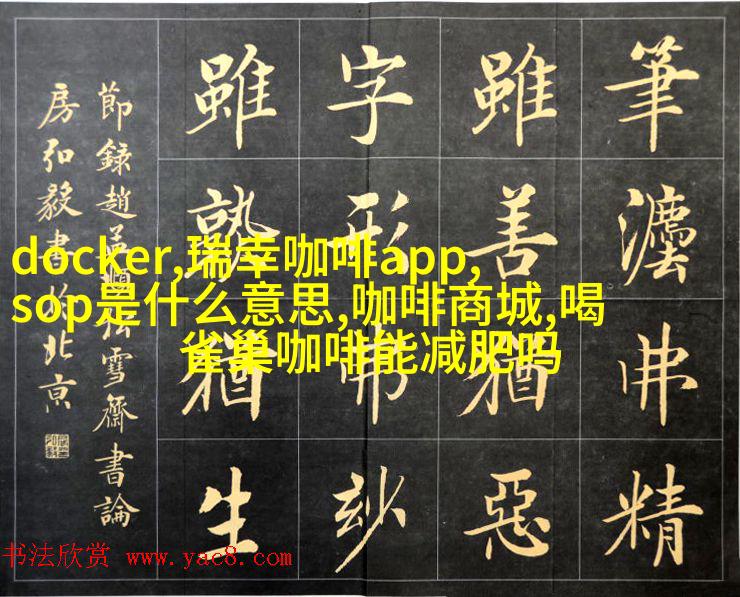 筆灋弗精
雖善猶惡
字形弗玅
雖熟猶生
節錄趙孟頫松雪齋書論
房弘毅書於北京
docker,瑞幸咖啡app,
sop是什么意思,咖啡商城,喝
雀巢咖啡能减肥吗
书法欣赏 www.yac8.com